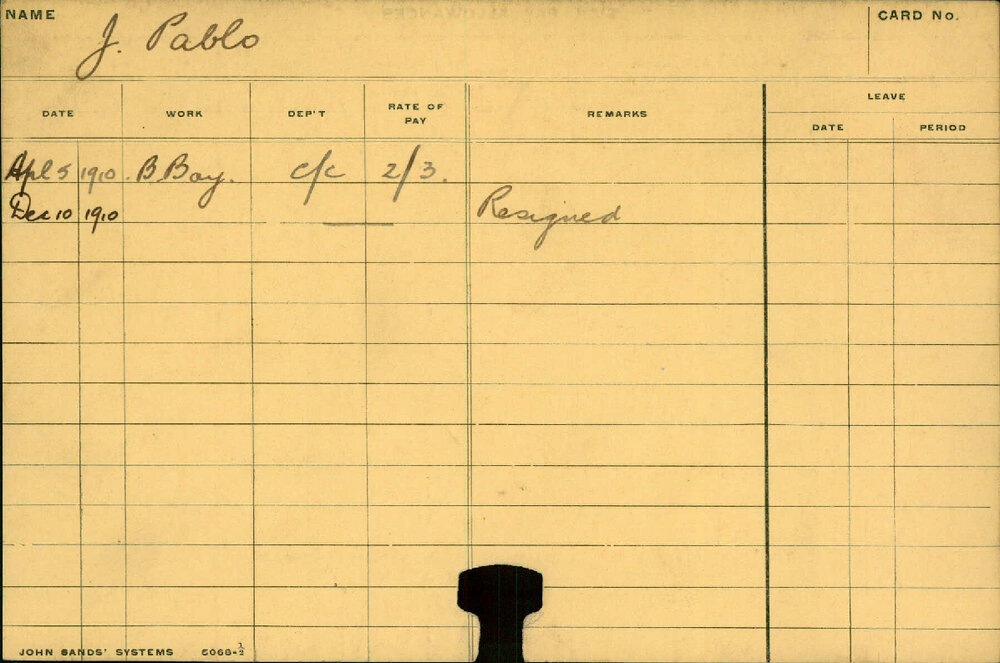 NAME J. Pablo CARD No.
DATE WORK DEP'T RATE OF PAY REMARKS LEAVE
DATE PERIOD
Apl 5 1910. B. Boy. c/c 2/3.
Dec 10 1910 Resigned
JOHN SANDS' SYSTEMS 5068-½